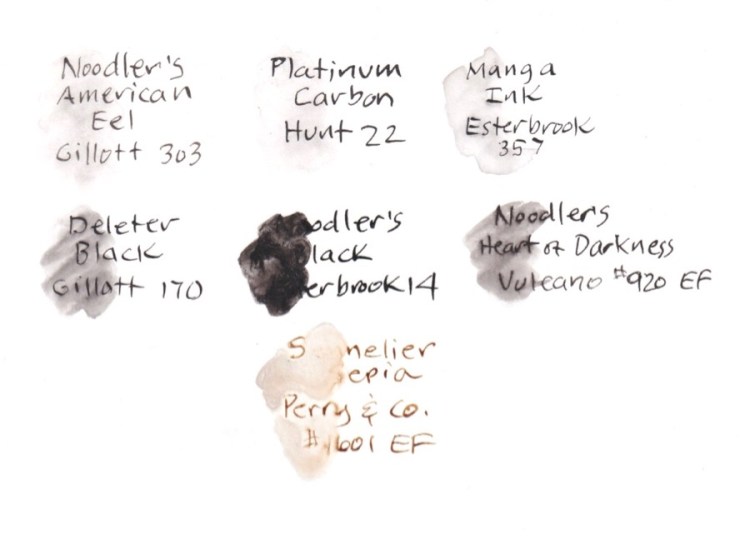 Noodler's
American
Eel
Gillott 303
Platinum
Carbon
Hunt 22
Manga
Ink
Esterbrook
357
Deleter
Black
Gillott 170
odler's
lack
erbrook 14
Noodler's
Heart of Darkness
Vulcano #920 EF
S nelier
epia
Perry & Co.
#1601 EF